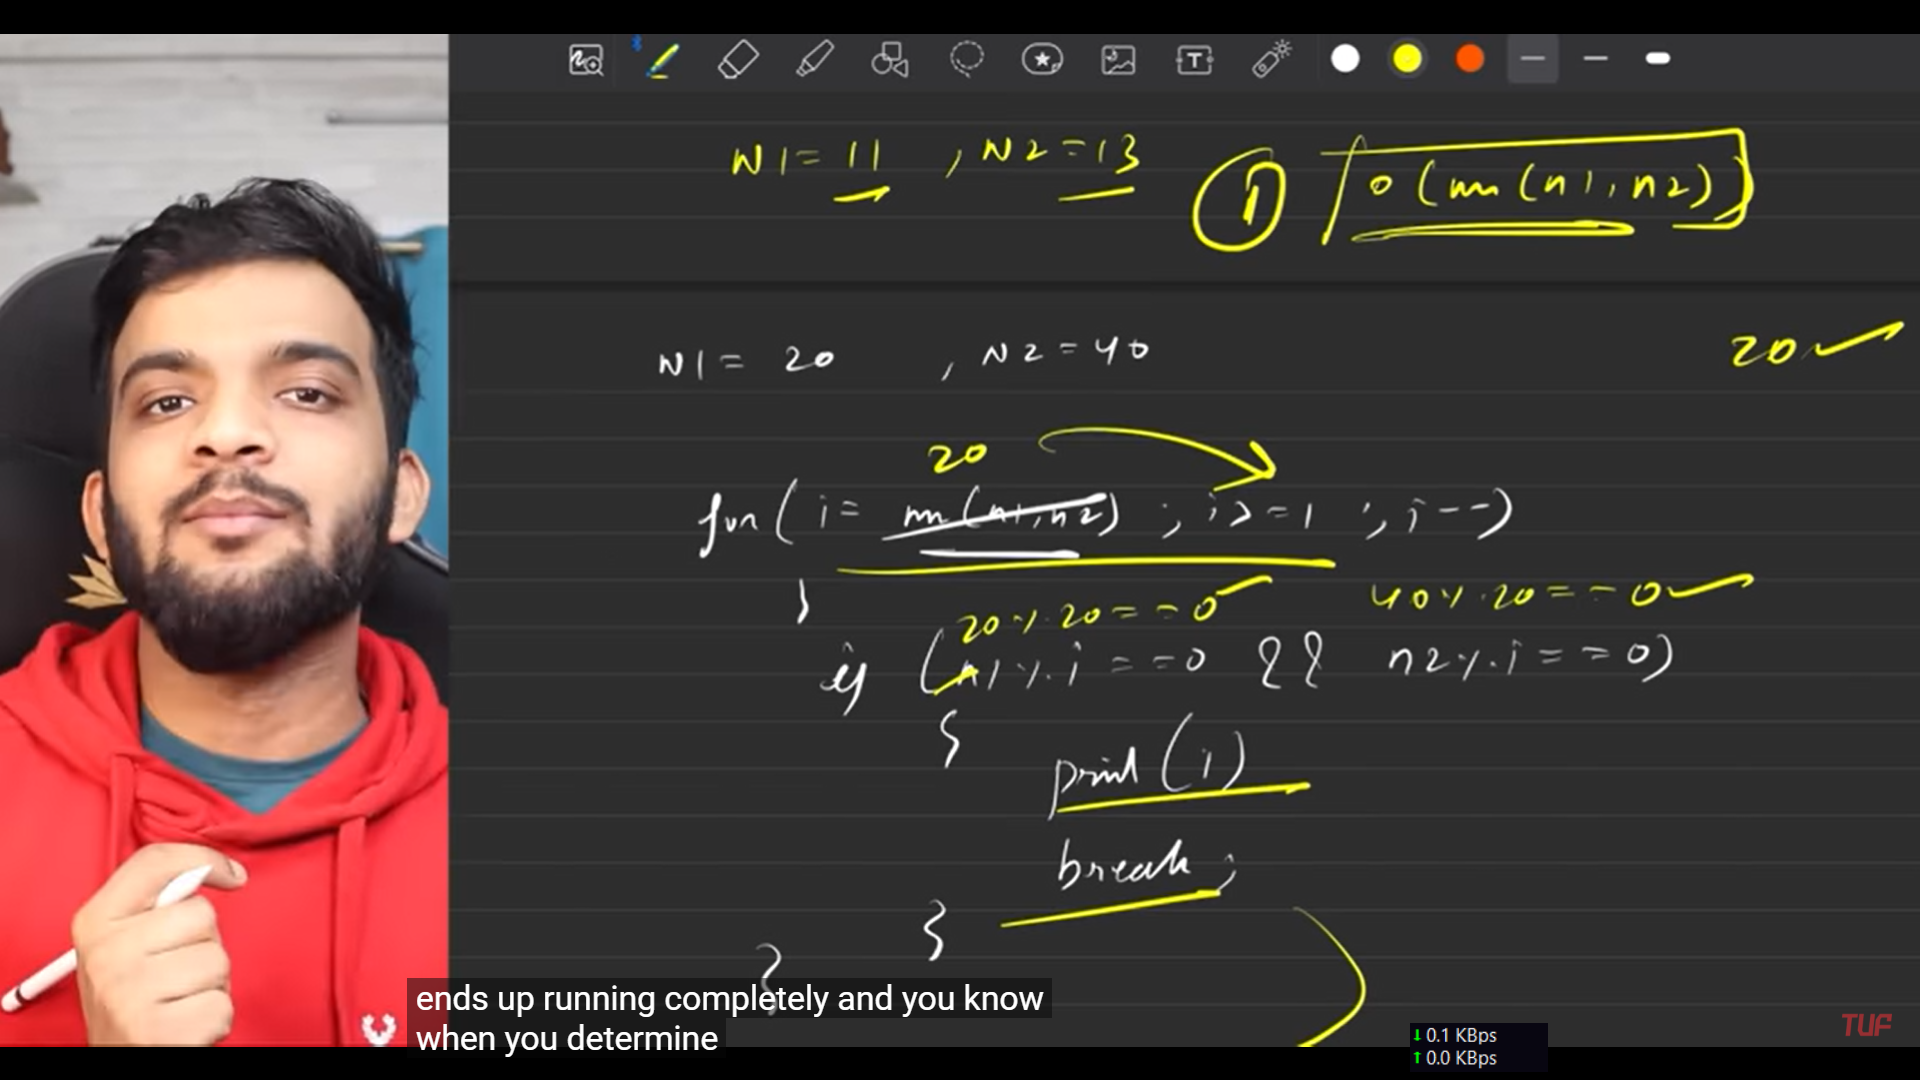 N1 = 11 , N2 = 13
1 O(min(n1, n2))
N1 = 20 , N2 = 40
20
20
for(i = min(n1, n2) ; i >= 1 ; i--)
{
20 % 20 == 0 40 % 20 == 0
if (n1 % i == 0 && n2 % i == 0)
{
print(i)
break;
}
}
ends up running completely and you know
when you determine
TUF
↓ 0.1 KBps
↑ 0.0 KBps